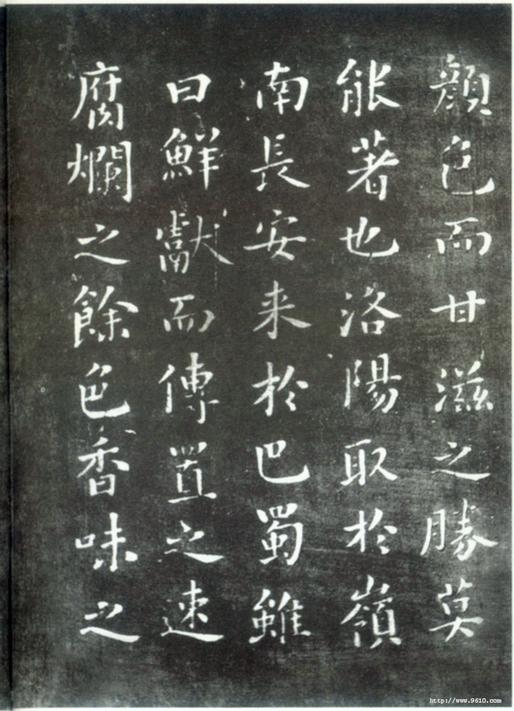 顔色而甘滋之勝莫
能著也洛陽取於嶺
南長安来於巴蜀雖
曰鮮獻而傳置之速
腐爛之餘色香味之
http://www.9610.com